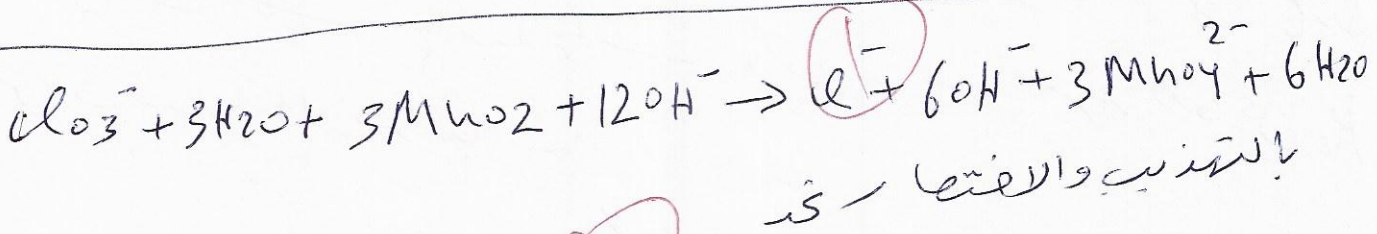 ClO3⁻ + 3H2O + 3MnO2 + 12OH⁻ → Cl⁻ + 6OH⁻ + 3MnO4²⁻ + 6H2O
بالتهذيب والاختصار نجد